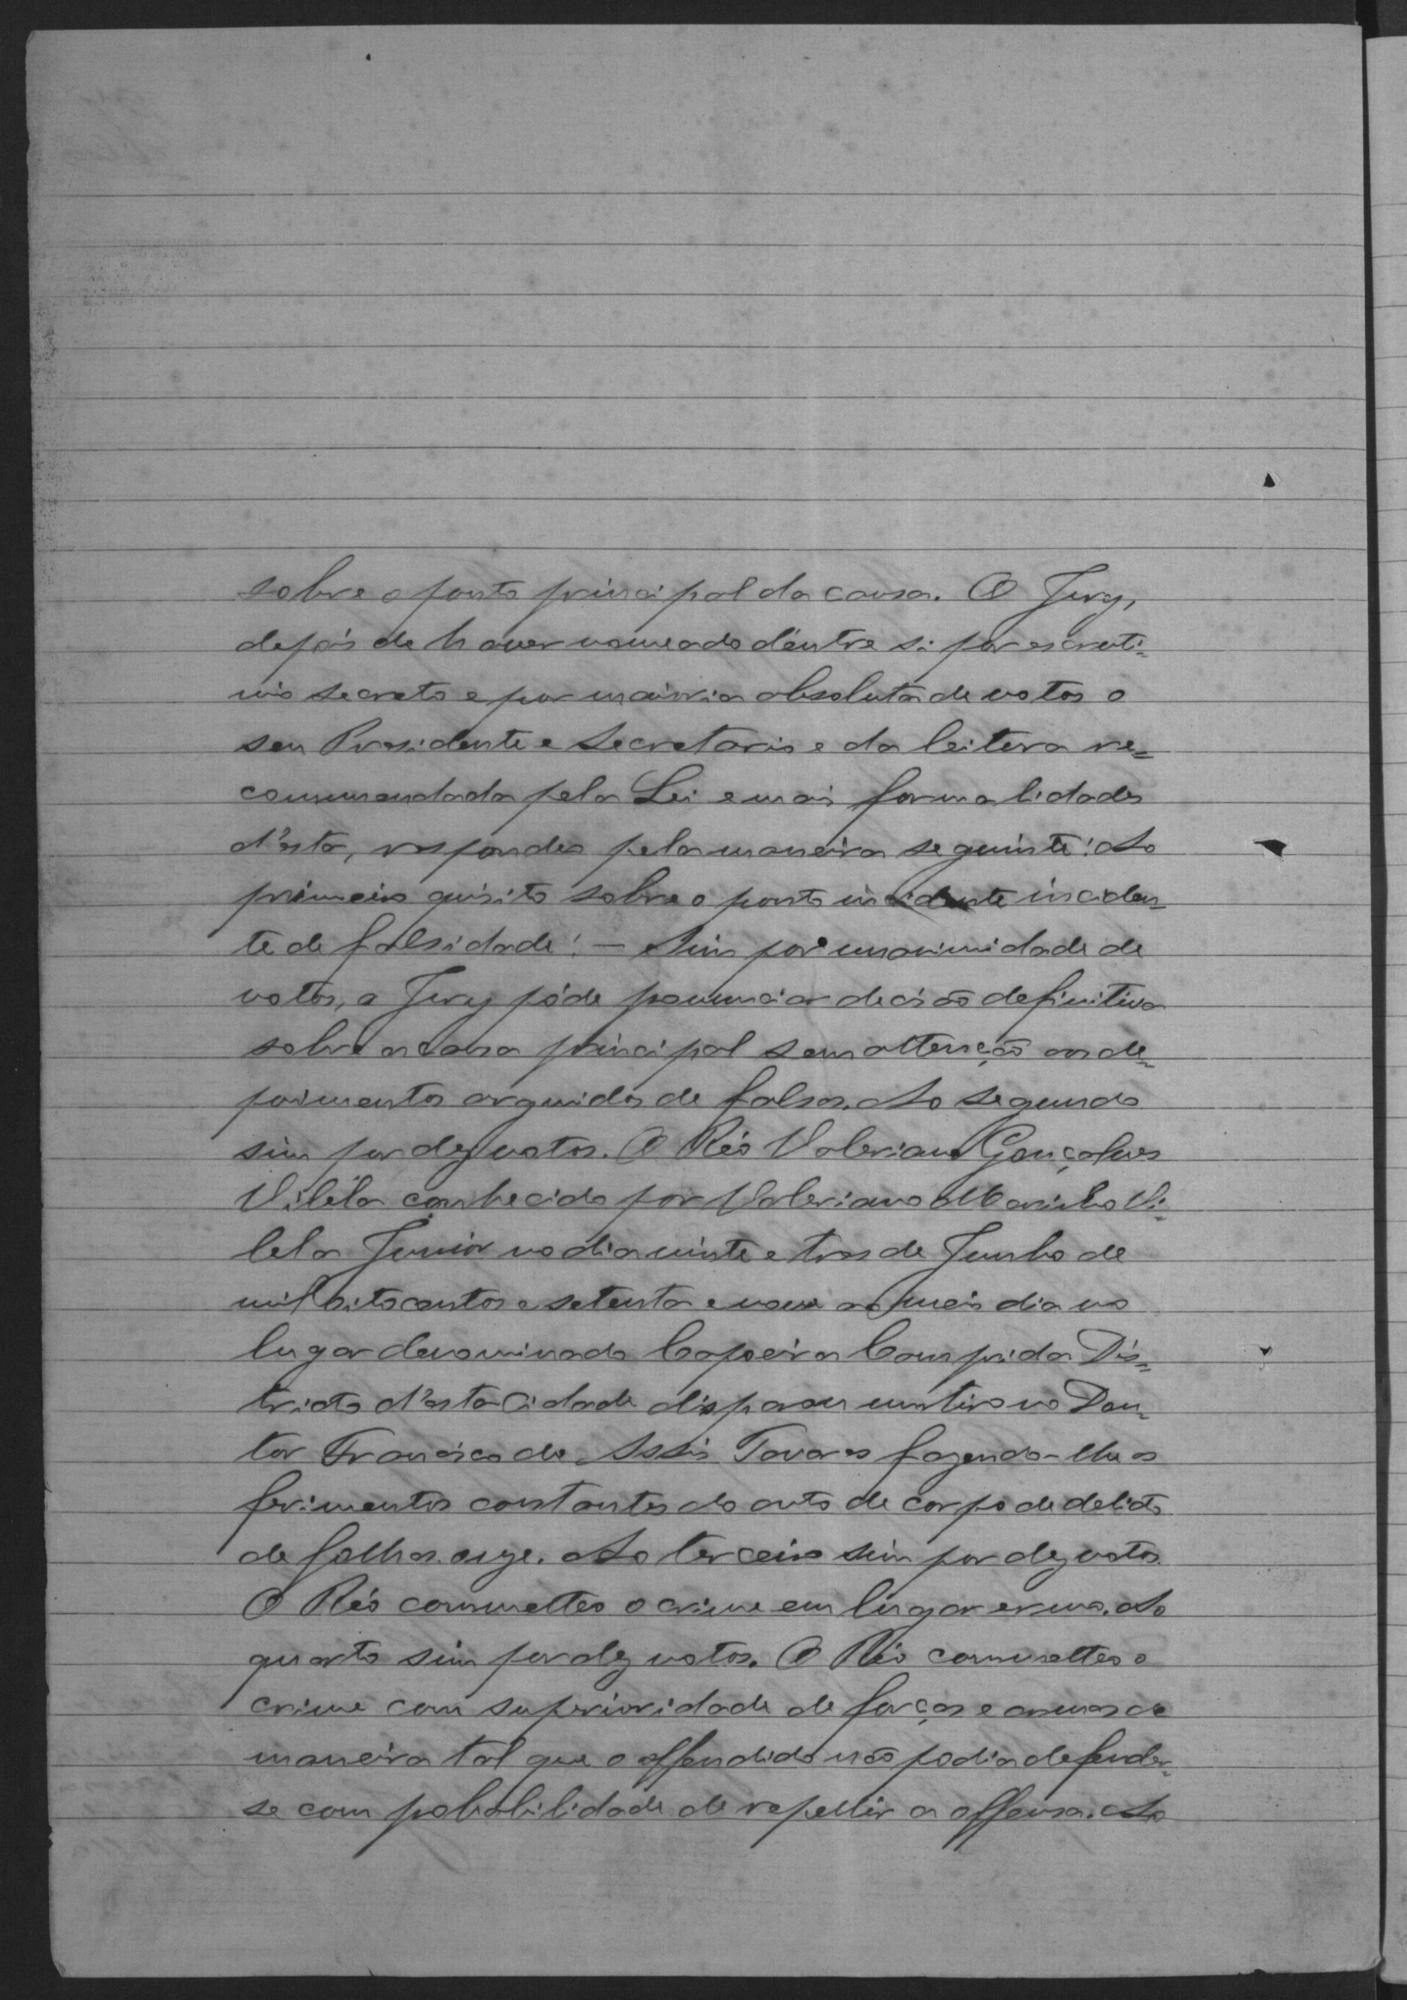 sobre o ponto principal da causa. O Jury,
depois de haver nomeado d'entre si por escruti-
nio secreto e por maioria absoluta de votos o
seu Presidente e Secretario e da leitura re-
commendada pela Lei e mais formalidades
d'esta, respondeo pela maneira seguinte: Ao
primeiro quisito sobre o ponto inciden-
te de falsidade: — Sim por unanimidade de
votos, o Jury póde pronunciar decisão definitiva
sobre a causa principal sem attenção aos de-
poimentos arguidos de falsos. Ao segundo
sim por dez votos. O Réo Valeriano Gonçalves
Vilela conhecido por Valeriano Marinho Vi-
lela Junior no dia vinte e tres de Junho de
mil oitocentos e setenta e nove ao meio dia no
lugar denominado Capoeira Comprida Dis-
tricto d'esta Cidade disparou um tiro no Dou-
tor Francisco de Assis Tavares fazendo-lhe os
ferimentos constantes do auto de corpo de delicto
de folhas onze. Ao terceiro sim por dez votos.
O Réo commetteo o crime em lugar ermo. Ao
quarto sim por dez votos. O Réo commetteo o
crime com superioridade de forças e armas de
maneira tal que o offendido não podia defender-
se com probabilidade de repellir a offensa. Ao